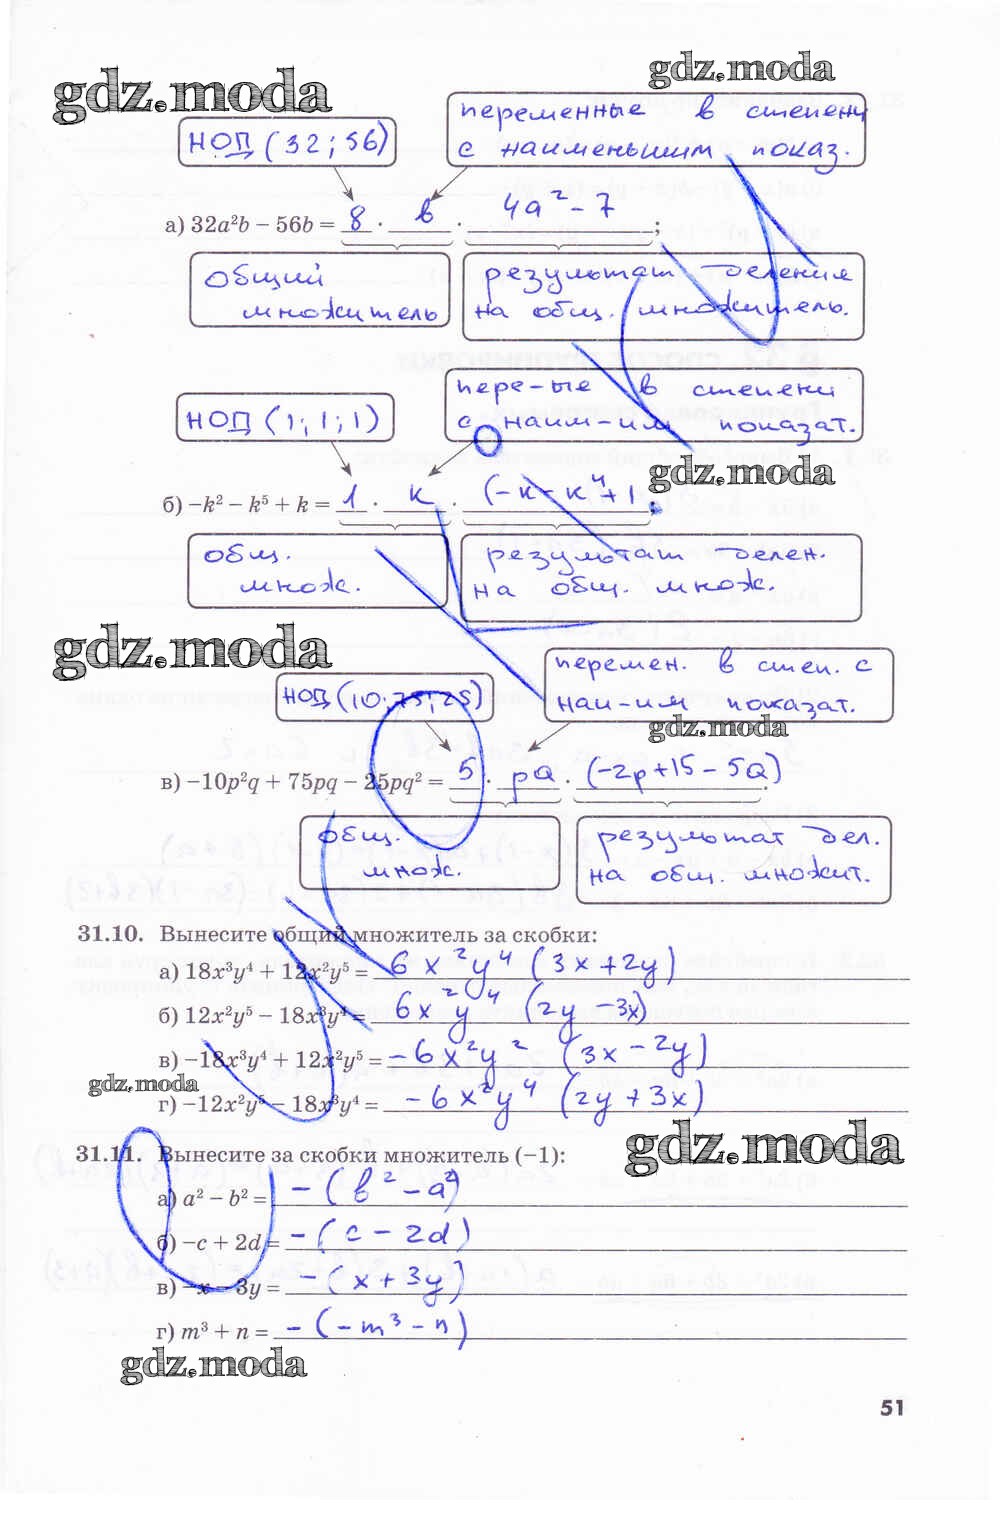 gdz.moda
gdz.moda
НОД (32; 56)
переменные в степени
с наименьшим показ.
а) 32a²b − 56b = 8 · b · 4a² − 7 ;
общий
множитель
результат деления
на общ. множитель.
НОД (1; 1; 1)
пере-ые в степени
с наим-им показат.
gdz.moda
б) −k² − k⁵ + k = 1 · k · (−k − k⁴ + 1 .
общ.
множ.
результат делен.
на общ. множ.
gdz.moda
НОД (10; 75; 25)
перемен. в степ. с
наи-им показат.
gdz.moda
в) −10p²q + 75pq − 25pq² = 5 · pq · (−2p+15−5q) .
общ.
множ.
результат дел.
на общ. множит.
31.10. Вынесите общий множитель за скобки:
а) 18x³y⁴ + 12x²y⁵ = 6x²y⁴ (3x+2y)
б) 12x²y⁵ − 18x³y⁴ = 6x²y⁴ (2y −3x)
в) −18x³y⁴ + 12x²y⁵ = −6x²y² (3x − 2y)
gdz.moda
г) −12x²y⁵ − 18x³y⁴ = −6x²y⁴ (2y + 3x)
gdz.moda
31.11. Вынесите за скобки множитель (−1):
а) a² − b² = −(b² − a²)
б) −c + 2d = −(c − 2d)
в) −x − 3y = −(x + 3y)
г) m³ + n = −(−m³ − n)
gdz.moda
51